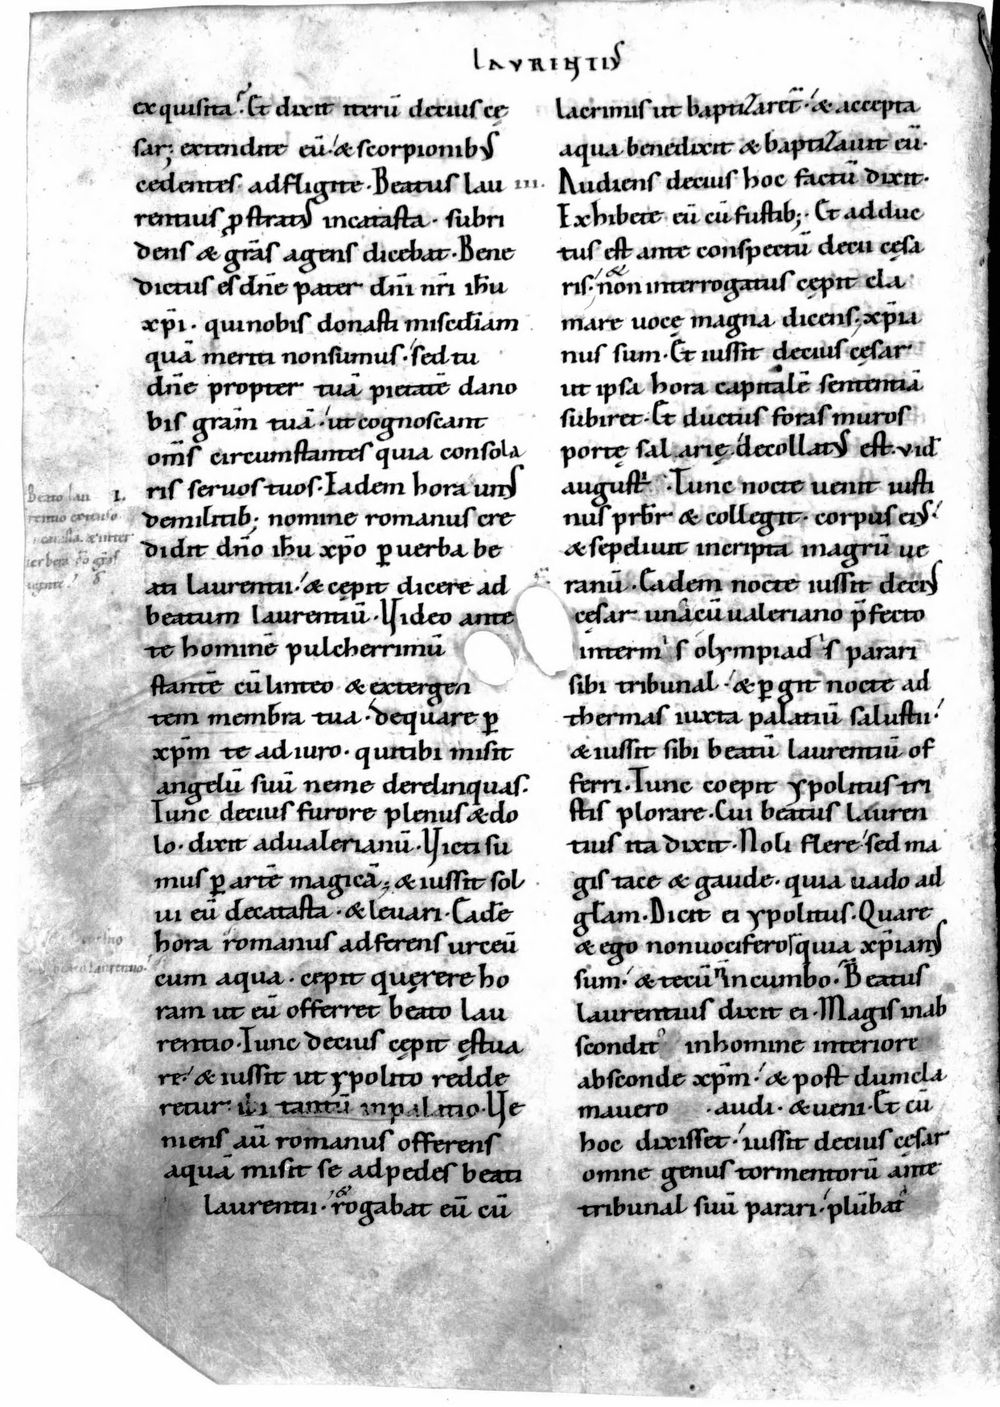 laurentiꝰ
exquisita. Et dixit iterū decius cę
sar; extendite eū. & scorpionibꝰ
cedentes adfligite. Beatus lau
rentius ꝓstratꝰ incatasta. subri
dens & gr̄as agens dicebat. Bene
dictus es dn̄e pater dn̄i nr̄i ih̄u
xp̄i. quinobis donasti misedīam
quā meriti nonsumus. sed tu
dn̄e propter tuā pietatē dano
bis gr̄am tuā. ut cognoscant
om̄s circumstantes quia consola
ris seruos tuos. Eadem hora unꝰ
demilitib; nomine romanus cre
didit dn̄o ih̄u xp̄o ꝑ uerba be
ati laurentii. & cępit dicere ad
beatum laurentiū. Video ante
te hominē pulcherrimū
stantē cū linteo & extergen
tem membra tua. dequare ꝑ
xp̄m te adiuro. quitibi misit
angelū suū neme derelinquas.
Tunc decius furore plenus & do
lo. dixit adualerianū. Victi su
mus ꝑ artē magicā; & iussit sol
ui eū decatasta. & leuari. Eadē
hora romanus adferens urceū
cum aqua. cępit quęrere ho
ram ut eū offerret beato lau
rentio. Tunc decius cępit ęstua
re. & iussit ut ypolito redde
retur. ibi tantū inpalatio. Ve
niens aū romanus offerens
aquā misit se adpedes beati
laurentii. & rogabat eū cū
1.
Beato lau
beato laurentio
lacrimis ut baptizaret̄. & accepta
aqua benedixit & baptizauit eū.
III. Audiens decius hoc factū dixit.
Exhibete eū cū fustib;. Et adduc
tus est ante conspectū decii cęsa
ris. & non interrogatus cępit cla
mare uocę magna dicens; xp̄ia
nus sum. Et iussit decius cęsar
ut ipsa hora capitalē sententiā
subiret. Et ductus foras muros
portę salarię decollatꝰ est. vid
august. Tunc nocte uenit iusti
nus prb̄r & collegit corpus eiꝰ.
& sepeliuit incripta magrū ue
ranū. Eadem nocte iussit deciꝰ
cęsar unacū ualeriano p̄fecto
intermis olympiadis parari
sibi tribunal. & ꝑgit nocte ad
thermas iuxta palatiū salustii.
& iussit sibi beatū laurentiū of
ferri. Tunc coepit ypolitus tri
stis plorare. Cui beatus lauren
tius ita dixit. Noli flere sed ma
gis tace & gaude. quia uado ad
gl̄am. Dicit ei ypolitus. Quare
& ego nonuocifero quia xp̄ianꝰ
sum. & tecū incumbo. Beatus
laurentius dixit ei. Magis inab
scondito inhomine interiore
absconde xp̄m. & post dumcla
mauero audi. & ueni. Et cū
hoc dixisset. iussit decius cęsar
omne genus tormentorū ante
tribunal suū parari. plūbatę